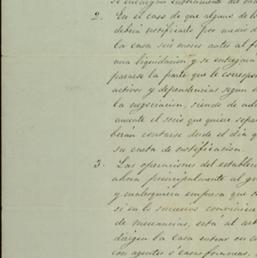 se encargan
2. En el caso de que alguno de los
deberá notificarlo por medio de
la casa seis meses antes al
una liquidacion y se entregará
pasarse la parte que le correspon
activos y dependencias segun
la negociacion, siendo de ad
el socio que quiere separ
berán contarse desde el dia q
su carta de notificacion.
3. Las operaciones del estableci
ahora principalmente al
y cualesquiera empresa que se
si en lo sucesivo conviniere
de mercancias, está al
dirigen la casa entrar en
con agentes ó casas foraneas,